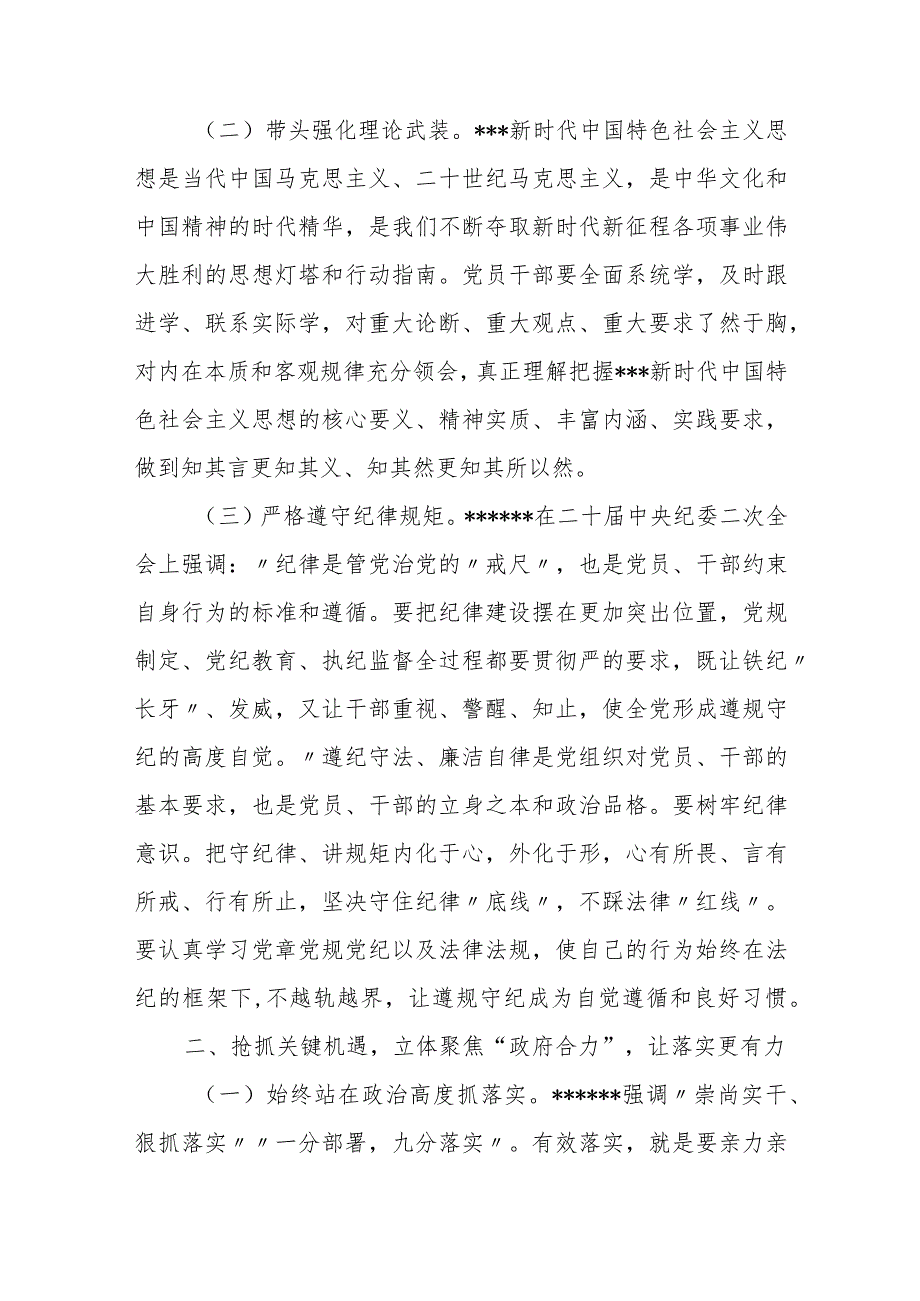 （二）带头强化理论武装。***新时代中国特色社会主义思
想是当代中国马克思主义、二十世纪马克思主义，是中华文化和
中国精神的时代精华，是我们不断夺取新时代新征程各项事业伟
大胜利的思想灯塔和行动指南。党员干部要全面系统学，及时跟
进学、联系实际学，对重大论断、重大观点、重大要求了然于胸，
对内在本质和客观规律充分领会，真正理解把握***新时代中国特
色社会主义思想的核心要义、精神实质、丰富内涵、实践要求，
做到知其言更知其义、知其然更知其所以然。
（三）严格遵守纪律规矩。******在二十届中央纪委二次全
会上强调：〃纪律是管党治党的〃戒尺〃，也是党员、干部约束
自身行为的标准和遵循。要把纪律建设摆在更加突出位置，党规
制定、党纪教育、执纪监督全过程都要贯彻严的要求，既让铁纪〃
长牙〃、发威，又让干部重视、警醒、知止，使全党形成遵规守
纪的高度自觉。〃遵纪守法、廉洁自律是党组织对党员、干部的
基本要求，也是党员、干部的立身之本和政治品格。要树牢纪律
意识。把守纪律、讲规矩内化于心，外化于形，心有所畏、言有
所戒、行有所止，坚决守住纪律〃底线〃，不踩法律〃红线〃。
要认真学习党章党规党纪以及法律法规，使自己的行为始终在法
纪的框架下,不越轨越界，让遵规守纪成为自觉遵循和良好习惯。
二、抢抓关键机遇，立体聚焦“政府合力”，让落实更有力
（一）始终站在政治高度抓落实。******强调〃崇尚实干、
狠抓落实〃〃一分部署，九分落实〃。有效落实，就是要亲力亲